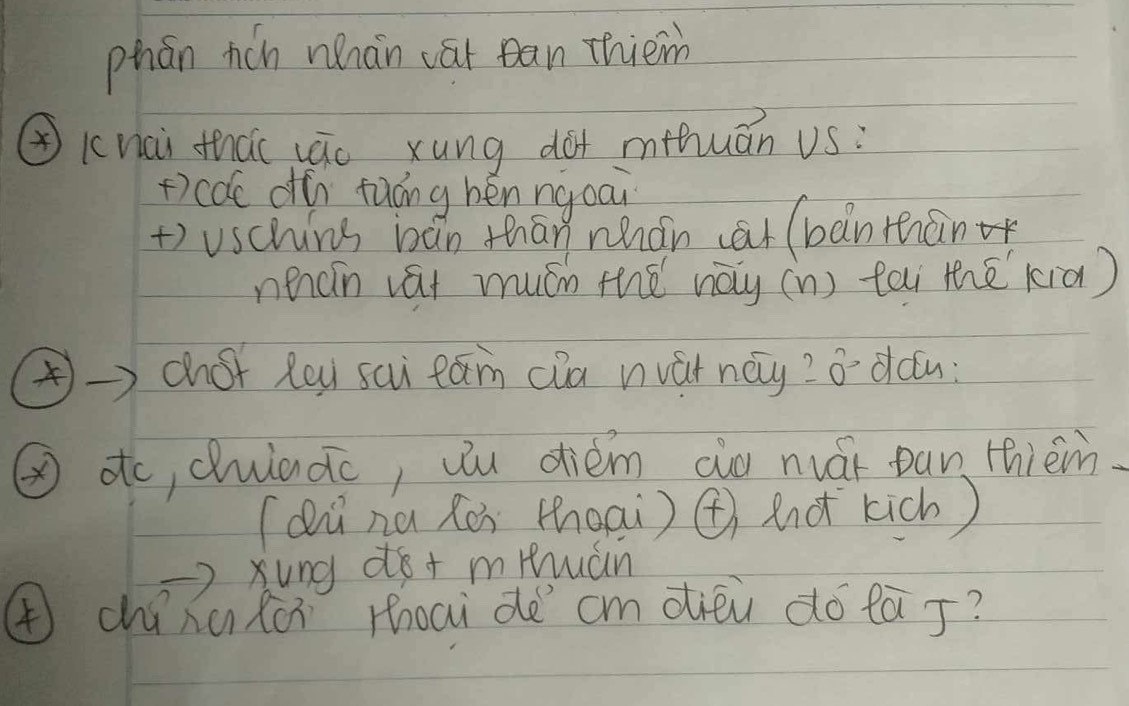 phân tích nhân vật Đan Thiềm
(*) Khai thác vào xung đột mthuẩn vs:
+) các đối tượng bên ngoài
+) vs chính bản thân nhân vật (bản thân
nhân vật muốn thế này (n) lại thế kia)
(*) → chốt lại sai lầm của nvật này? ở đâu:
(*) đc, chưa đc, ưu điểm của nvật Đan Thiềm
(chỉ ra lời thoại) (+, hđ kịch)
→ xung đột mthuẫn
(*) chỉ ra lời thoại để cm điều đó là J?